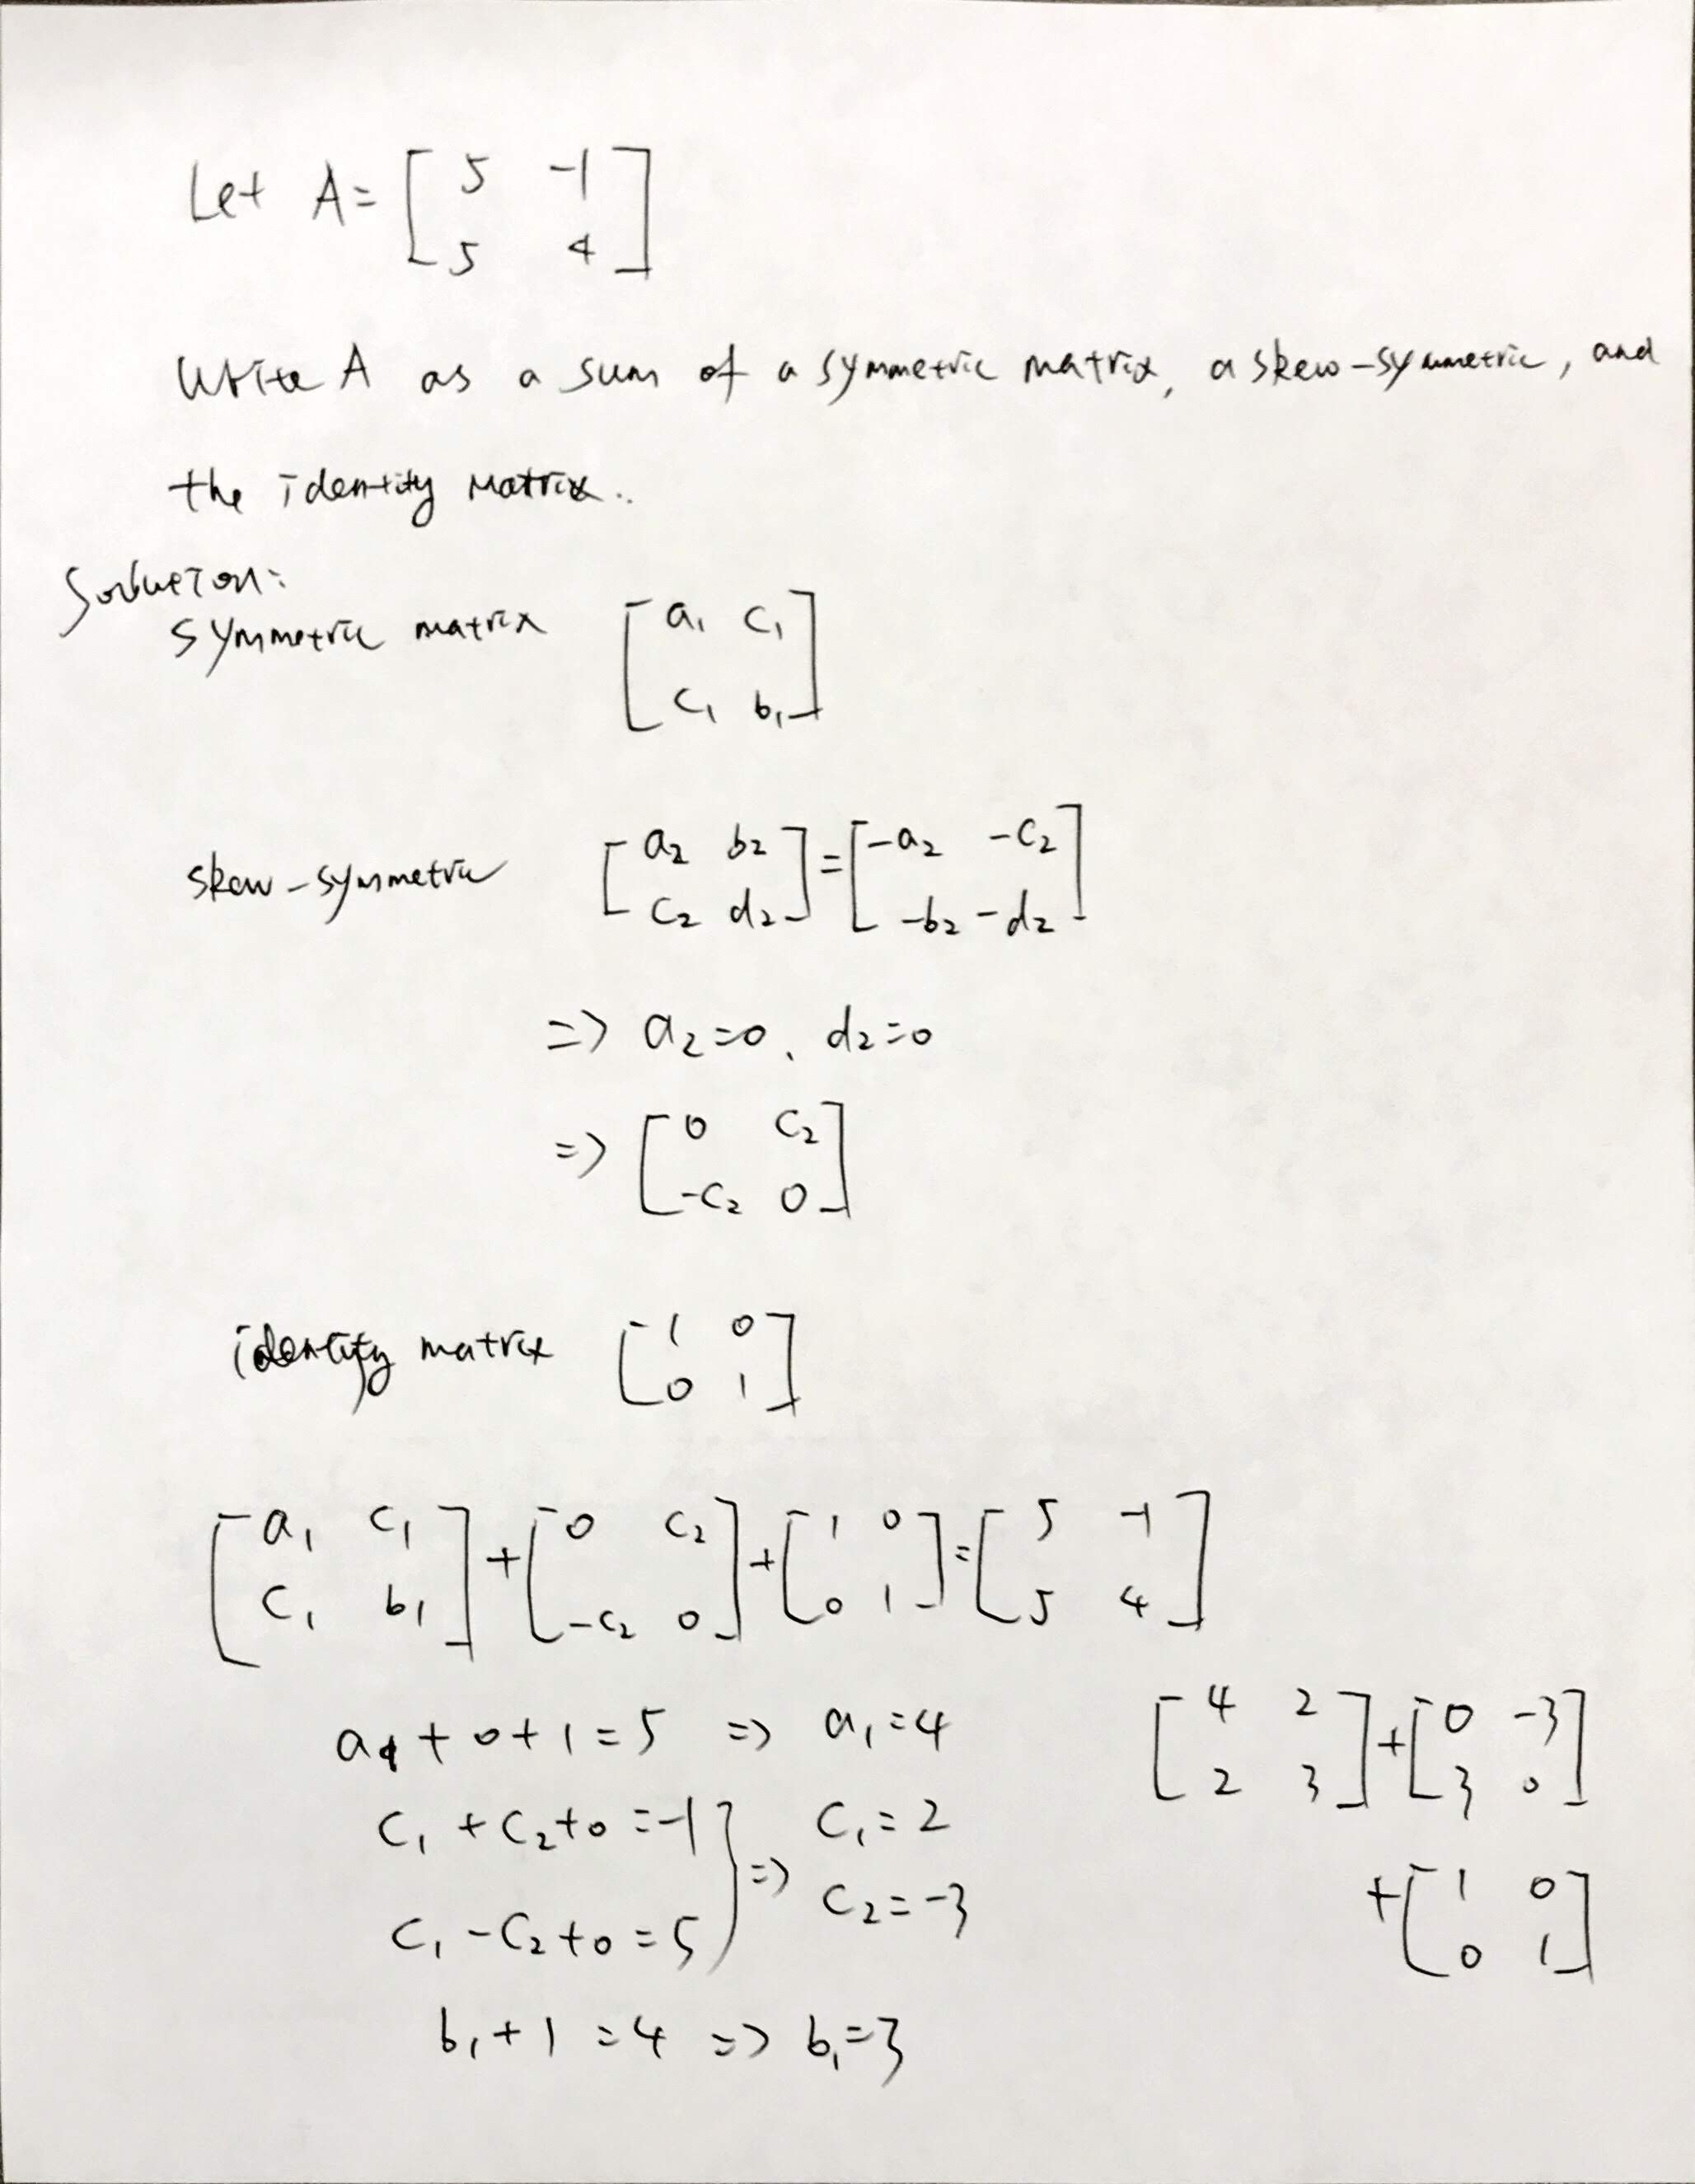 Let A = [ 5 -1
5 4 ]
Write A as a sum of a symmetric matrix, a skew-symmetric, and
the identity matrix..
Solution:
symmetric matrix [ a₁ c₁
c₁ b₁ ]
skew-symmetric [ a₂ b₂ = [ -a₂ -c₂
c₂ d₂ ] -b₂ -d₂ ]
=> a₂=0, d₂=0
=> [ 0 c₂
-c₂ 0 ]
identity matrix [ 1 0
0 1 ]
[ a₁ c₁ + [ 0 c₂ + [ 1 0 = [ 5 -1
c₁ b₁ ] -c₂ 0 ] 0 1 ] 5 4 ]
a₁ + 0 + 1 = 5 => a₁ = 4
c₁ + c₂ + 0 = -1 } => c₁ = 2
c₁ - c₂ + 0 = 5 c₂ = -3
b₁ + 1 = 4 => b₁ = 3
[ 4 2 + [ 0 -3
2 3 ] 3 0 ]
+ [ 1 0
0 1 ]